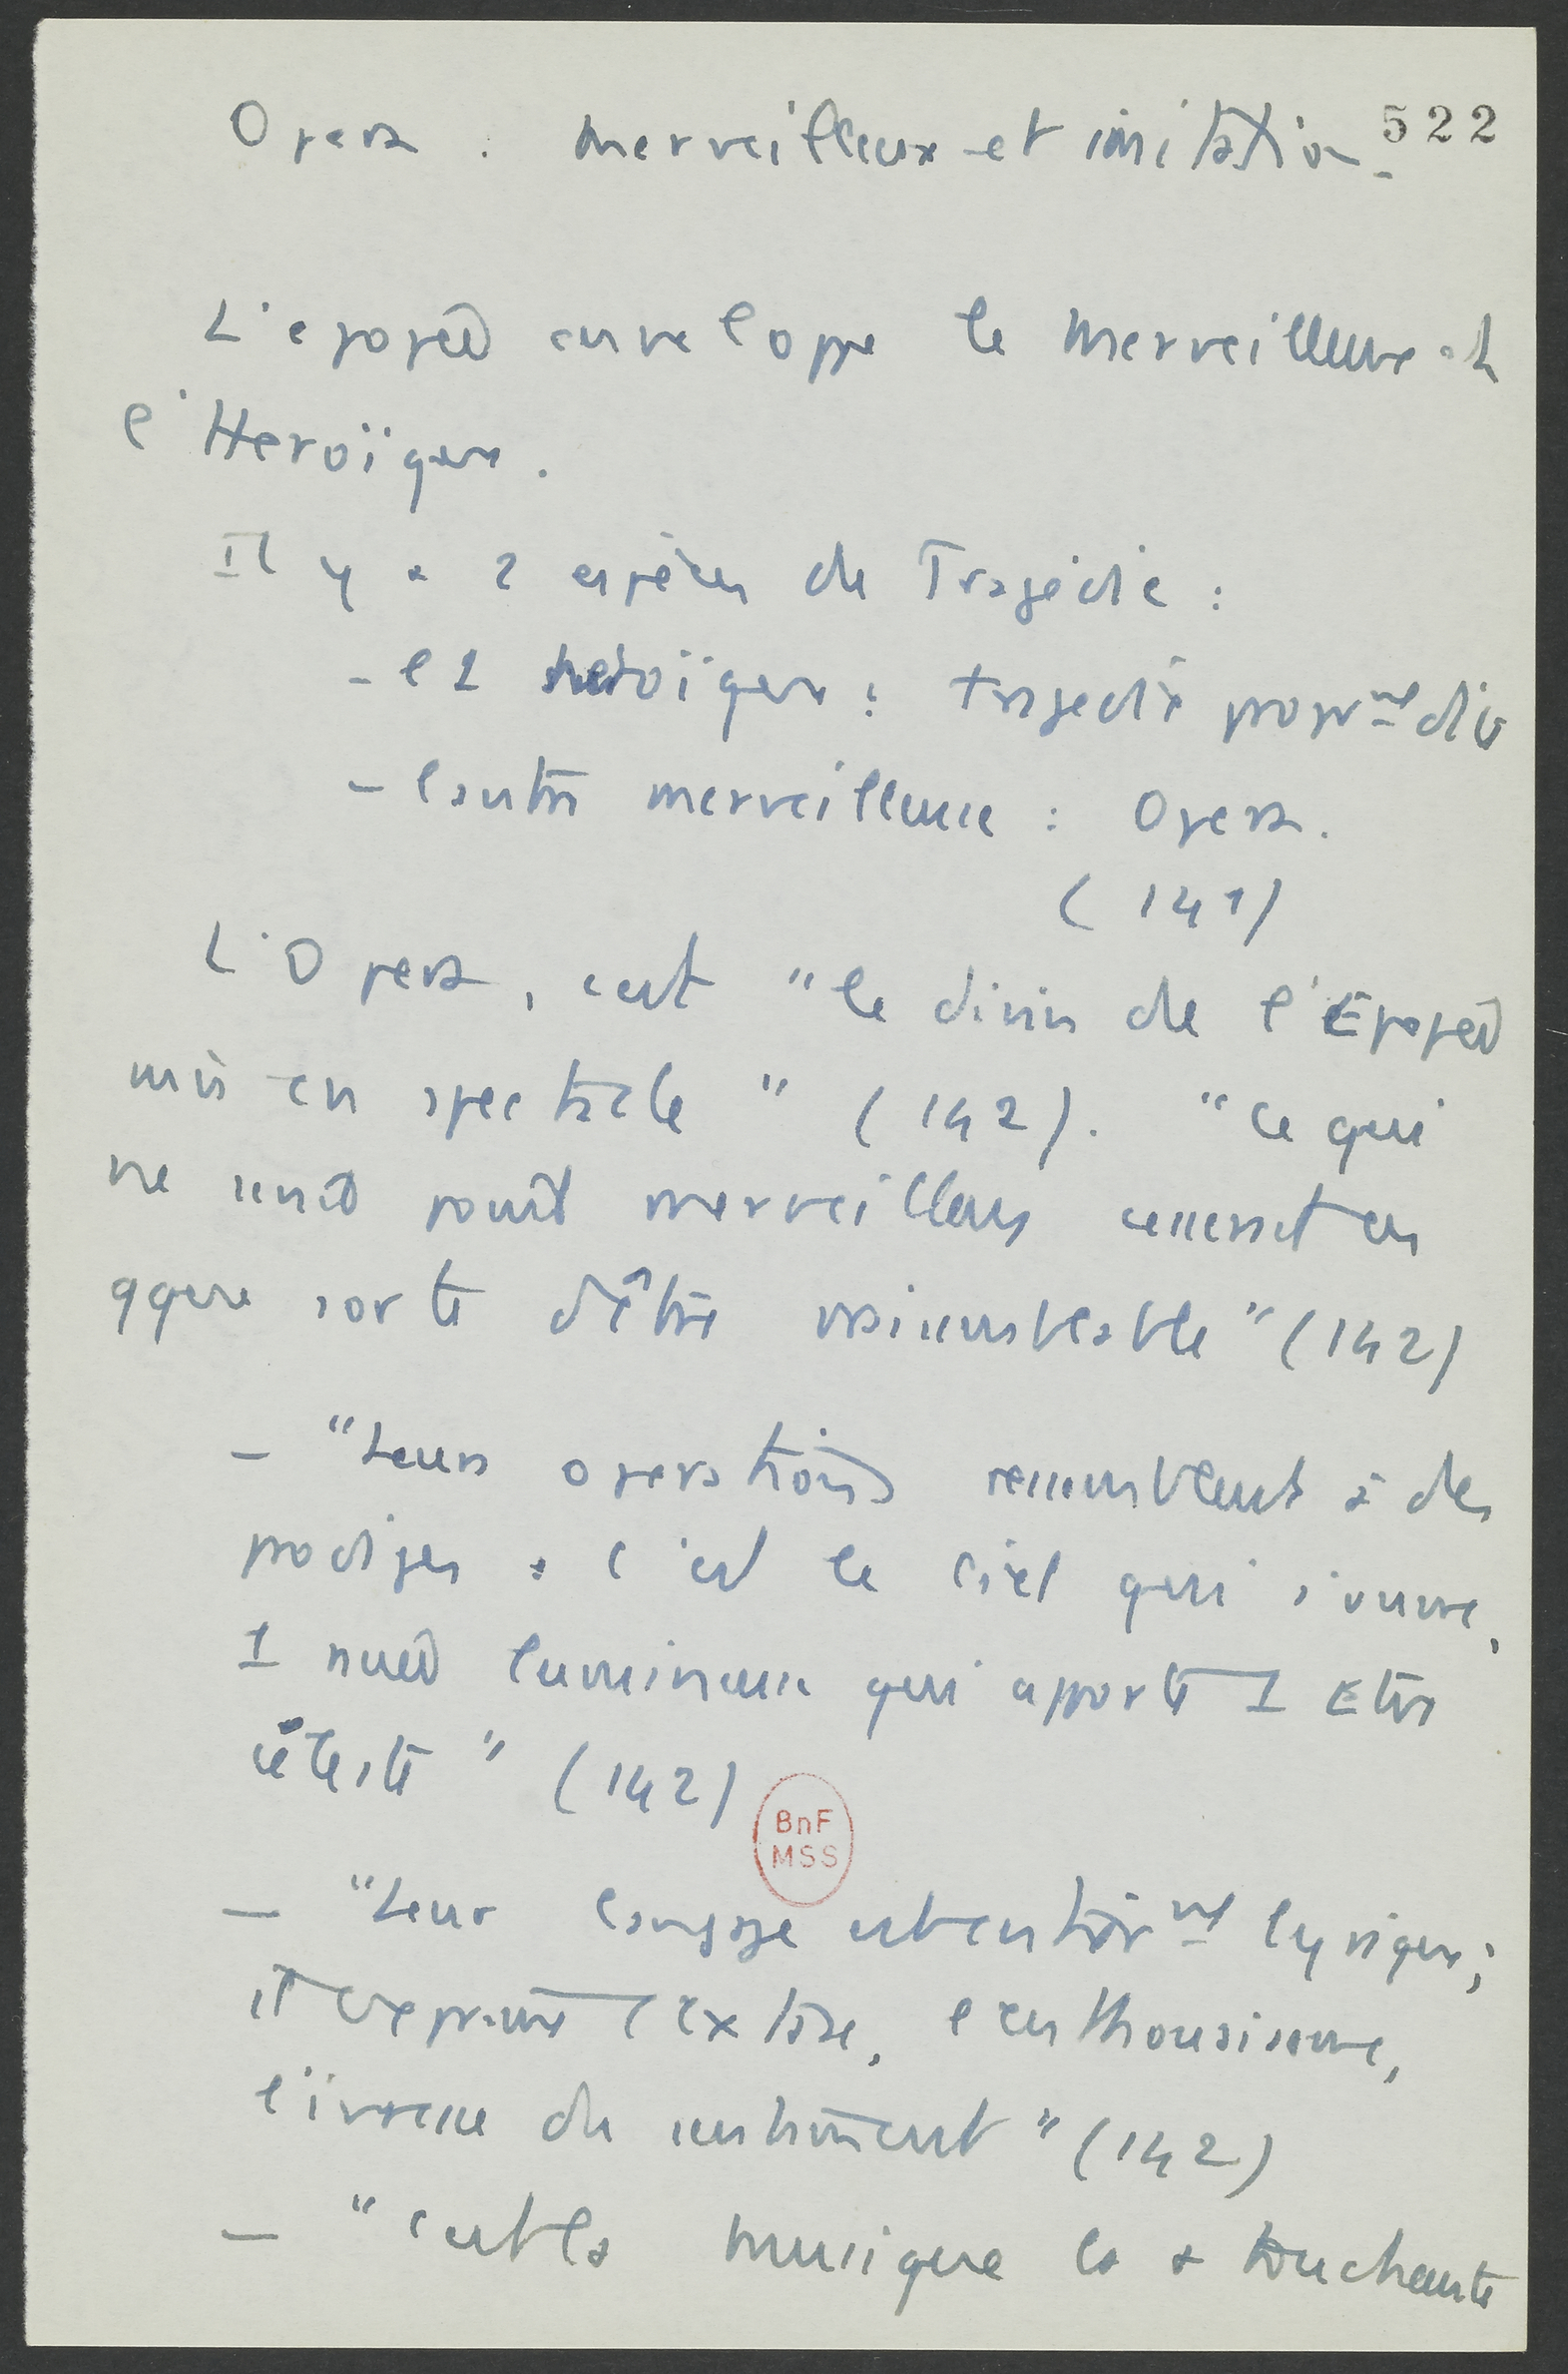 522
Opera : Merveilleux et imitation.
L'epopée enveloppe le Merveilleux et
l'Heroïque.
Il y a 2 espèces de Tragédie :
- l 1 heroïque : tragedie proprmt dite
- l'autre merveilleuse : Opera.
(141)
L'Opera, c'est "le divin de l'Epopée
mis en spectacle" (142). "Ce qui
ne serait point merveilleux cesserait en
qque sorte d'être vraisemblable" (142)
- "Leurs operations ressemblent à des
prodiges : c'est le Ciel qui s'ouvre,
1 nuée lumineuse qui apporte 1 Etre
céleste" (142)
BnF
MSS
- "Leur langage est entièrmt lyrique ;
il exprime l'extase, l'enthousiasme,
l'ivresse du sentiment" (142)
- "C'est la musique la + touchante